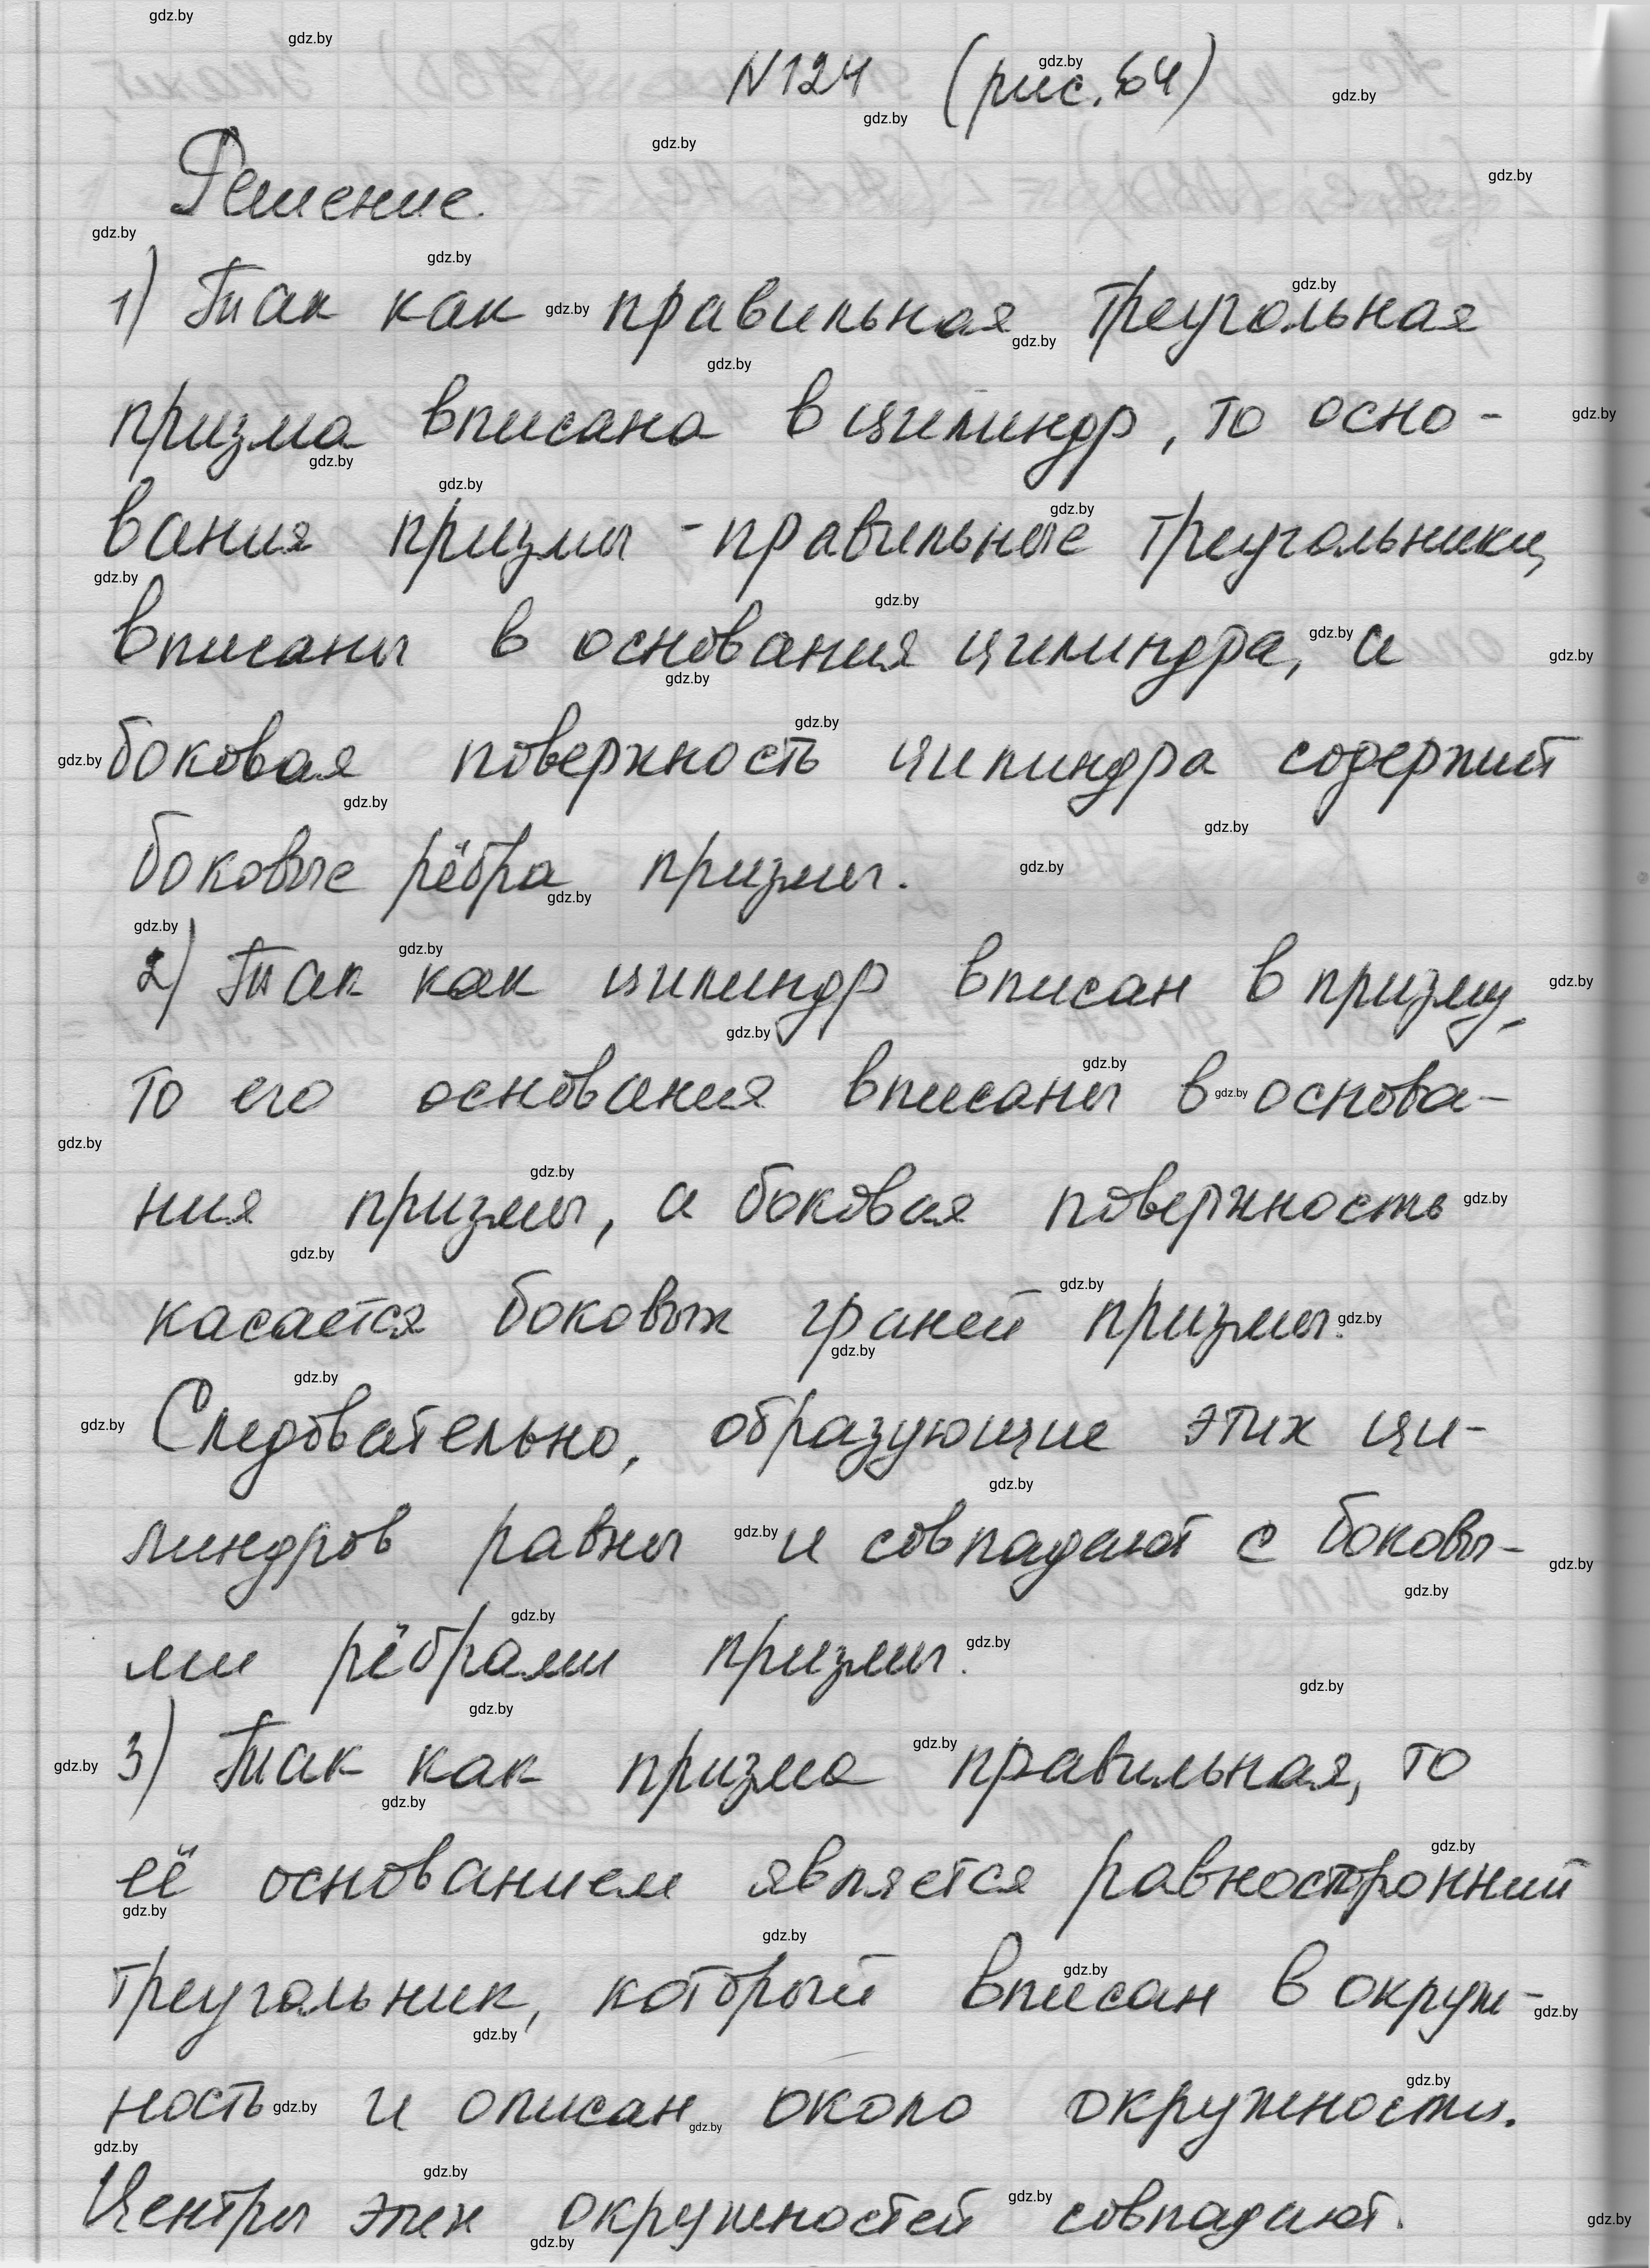 N124 (рис. 64)
Решение.
1) Так как правильная треугольная
призма вписана в цилиндр, то осно-
вания призмы - правильные треугольники,
вписаны в основания цилиндра, а
боковая поверхность цилиндра содержит
боковые рёбра призмы.
2) Так как цилиндр вписан в призму,
то его основания вписаны в основа-
ния призмы, а боковая поверхность
касается боковых граней призмы.
Следовательно, образующие этих ци-
линдров равны и совпадают с боковы-
ми рёбрами призмы.
3) Так как призма правильная, то
её основанием является равносторонний
треугольник, который вписан в окруж-
ность и описан около окружности.
Центры этих окружностей совпадают.
gdz.by